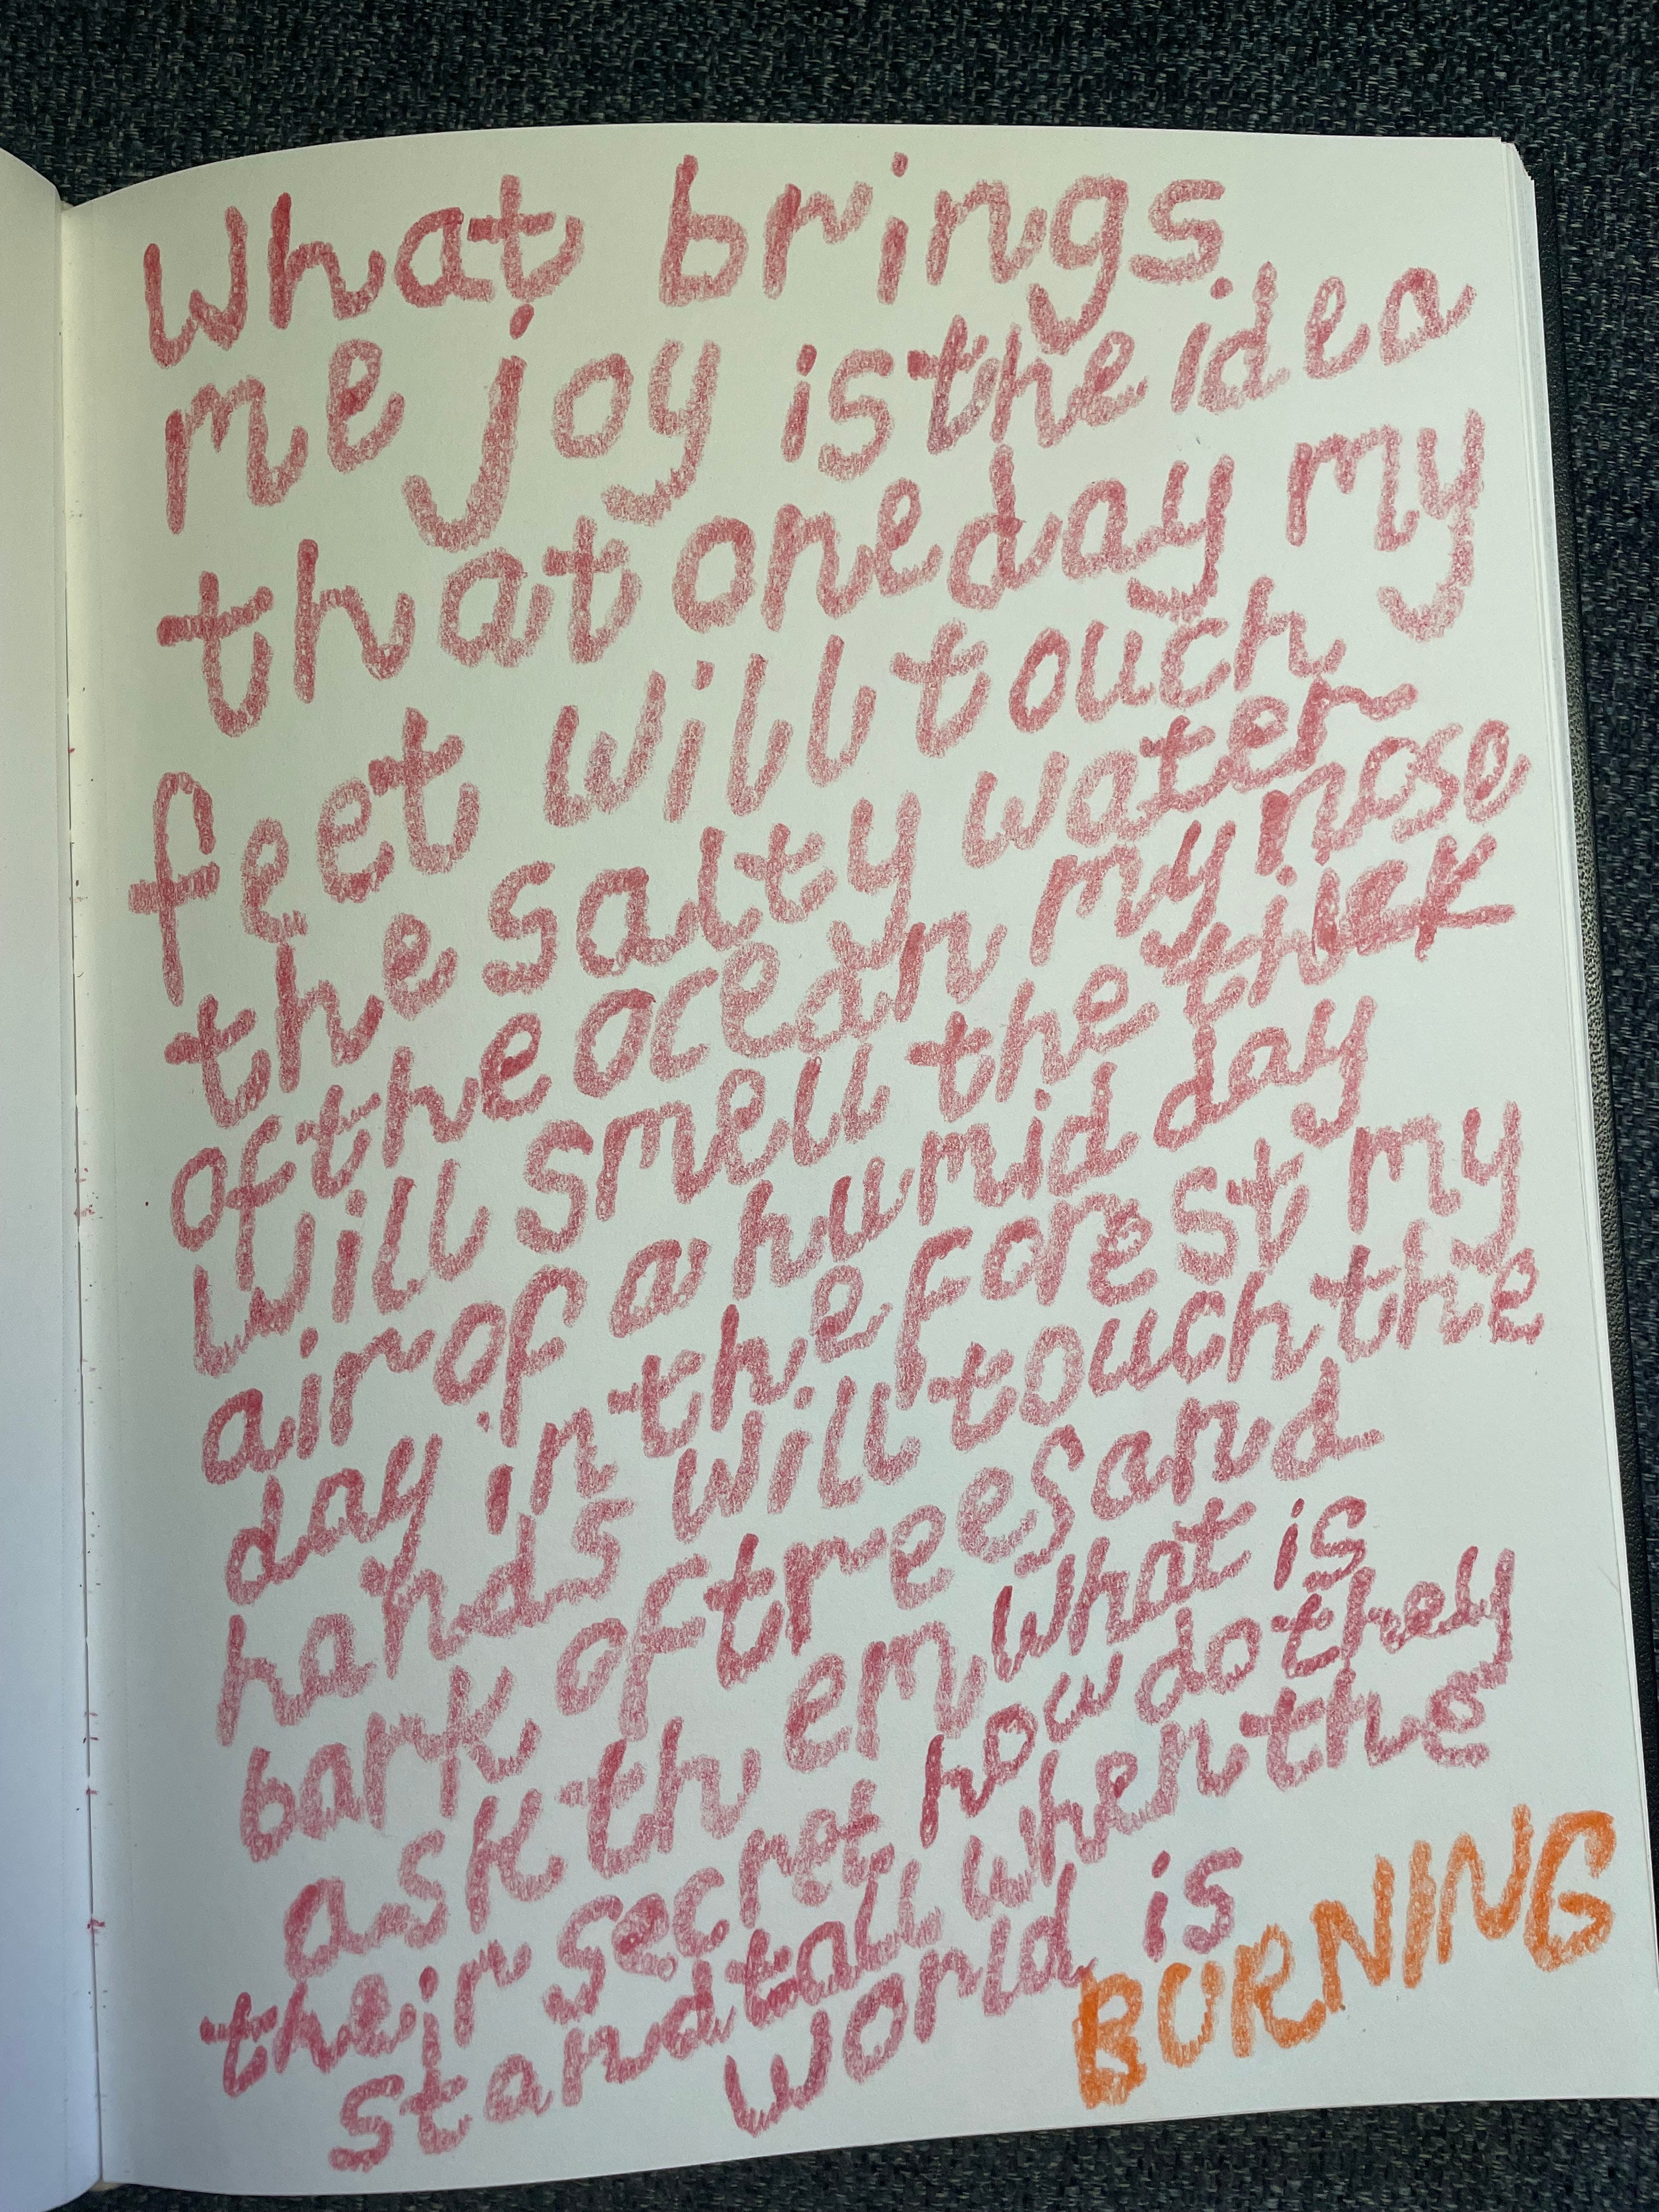 What brings
me joy is the idea
that one day my
feet will touch
the salty water
of the ocean my nose
will smell the thick
air of a humid day
day in the forest my
hands will touch the
bark of trees and
ask them what is
their secret how do they
stand tall when the
world is BURNING